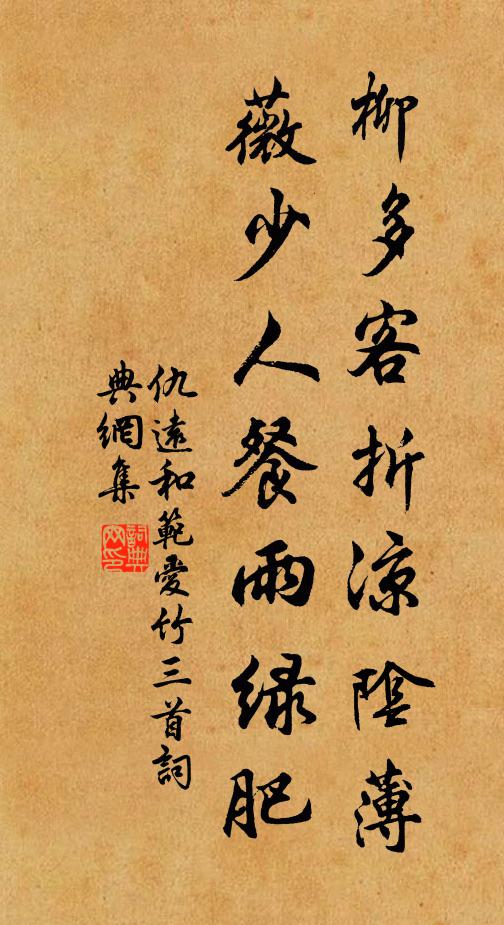 柳多客折涼陰薄
薇少人餐雨緑肥
仇遠和範愛竹三首詞
典網集
詞典
网印